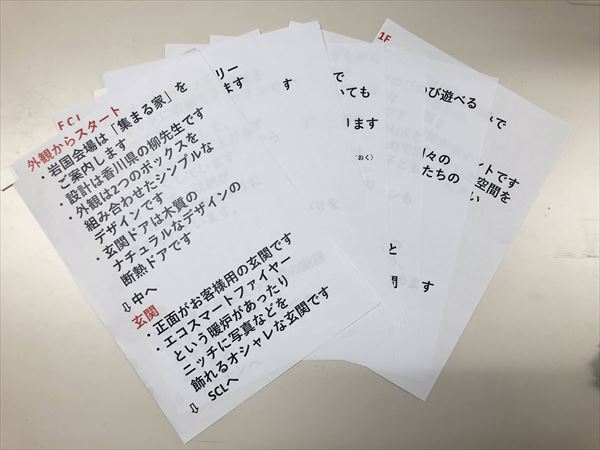 FCI
外観からスタート
・岩国会場は「集まる家」を
ご案内します
設計は香川県の柳先生です
・外観は2つのボックスを
組み合わせたシンプルな
デザインです
・玄関ドアは木質の
ナチュラルなデザインの
断熱ドアです
⇩中へ
玄関
・正面がお客様用の玄関です
・エコスマートファイヤー
という暖炉があったり
ニッチに写真などを
飾れるオシャレな玄関です
⇩ SCLへ
リー
ます
す
で
いても
ります
(おく)
と
間
す
び遊べる
々の
たちの
1F
で
ントです
空間を
い